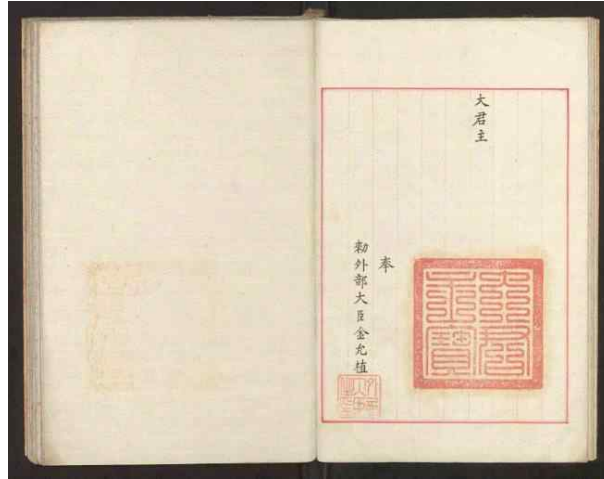 大君主
奉
勅外部大臣金允植